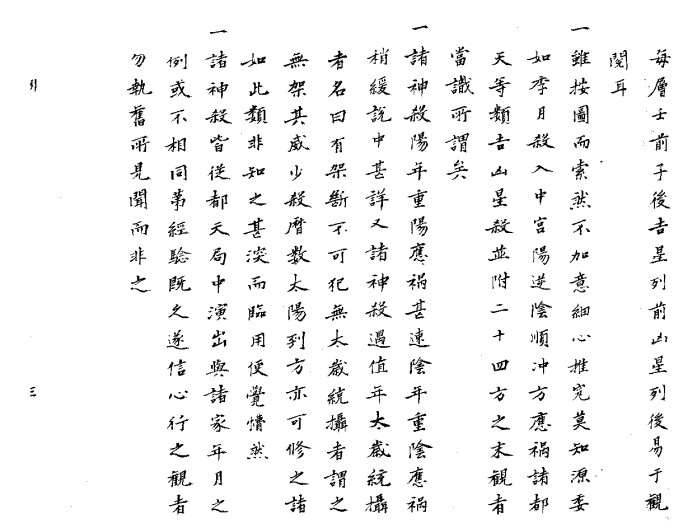 每層壬前子後吉星列前凶星列後易于觀
閱耳
一雖按圖而索然不加意細心推究莫知源委
如季月殺入中宮陽逆陰順冲方應禍諸都
天等類吉凶星殺並附二十四方之末觀者
當識所謂矣
一諸神殺陽年重陽應禍甚速陰年重陰應禍
稍緩說中甚詳又諸神殺遇值年太歲統攝
者名曰有架斷不可犯無太歲統攝者謂之
無架其威少殺曆數太陽到方亦可修之諸
如此類非知之甚深而臨用便覺懵然
一諸神殺皆從都天局中演出與諸家年月之
例或不相同第經驗既久遂信心行之觀者
勿執舊所見聞而非之
三